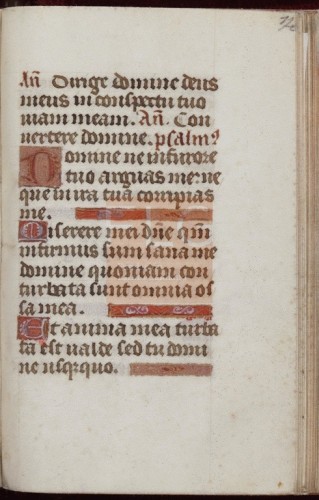 Añ Dirige domine deus
meus in conspectu tuo
uiam meam. Añ. Con
uertere domine. psalmꝰ
Domine ne in furore
tuo arguas me: ne
que in ira tua corripias
me.
Miserere mei dñe qm̄
infirmus sum sana me
domine quoniam con
turbata sunt omnia os
sa mea.
Et anima mea turba
ta est ualde sed tu domi
ne usqꝫquo.